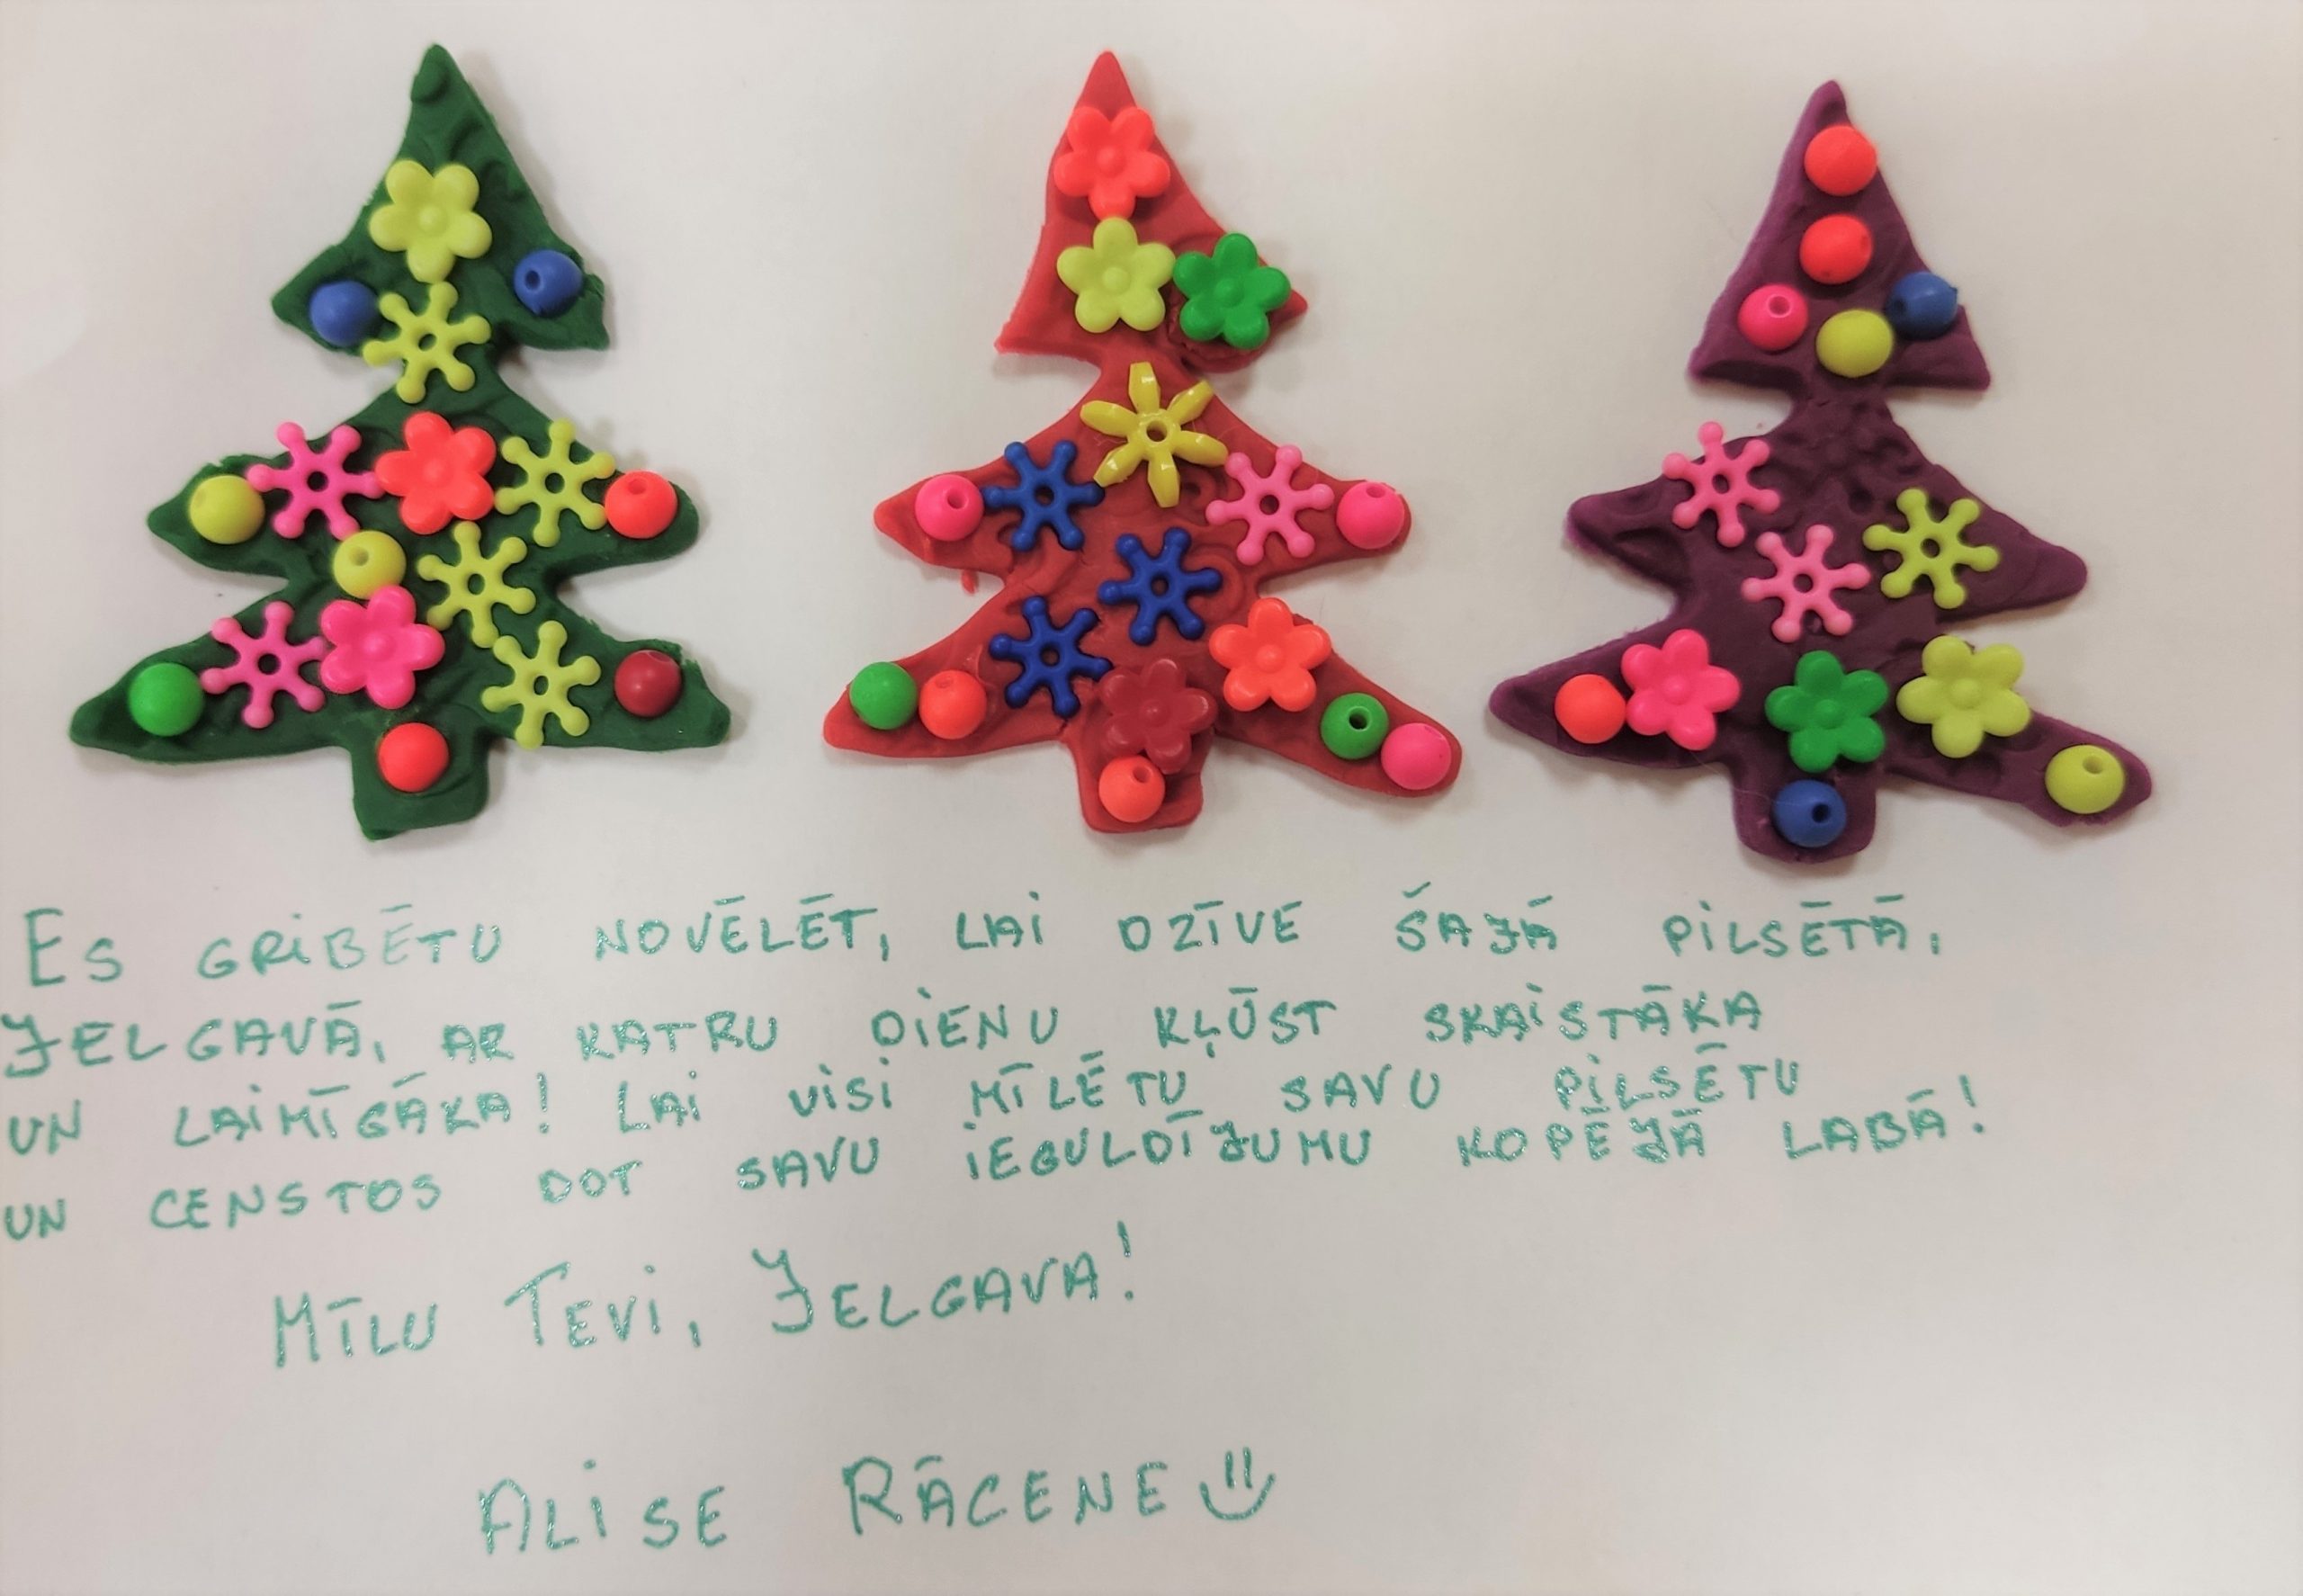 Es gribētu novēlēt, lai dzīve šajā pilsētā,
Jelgavā, ar katru dienu kļūst skaistāka
un laimīgāka! Lai visi mīlētu savu pilsētu
un censtos dot savu ieguldījumu kopējā labā!
Mīlu Tevi, Jelgava!
Alise Rācene